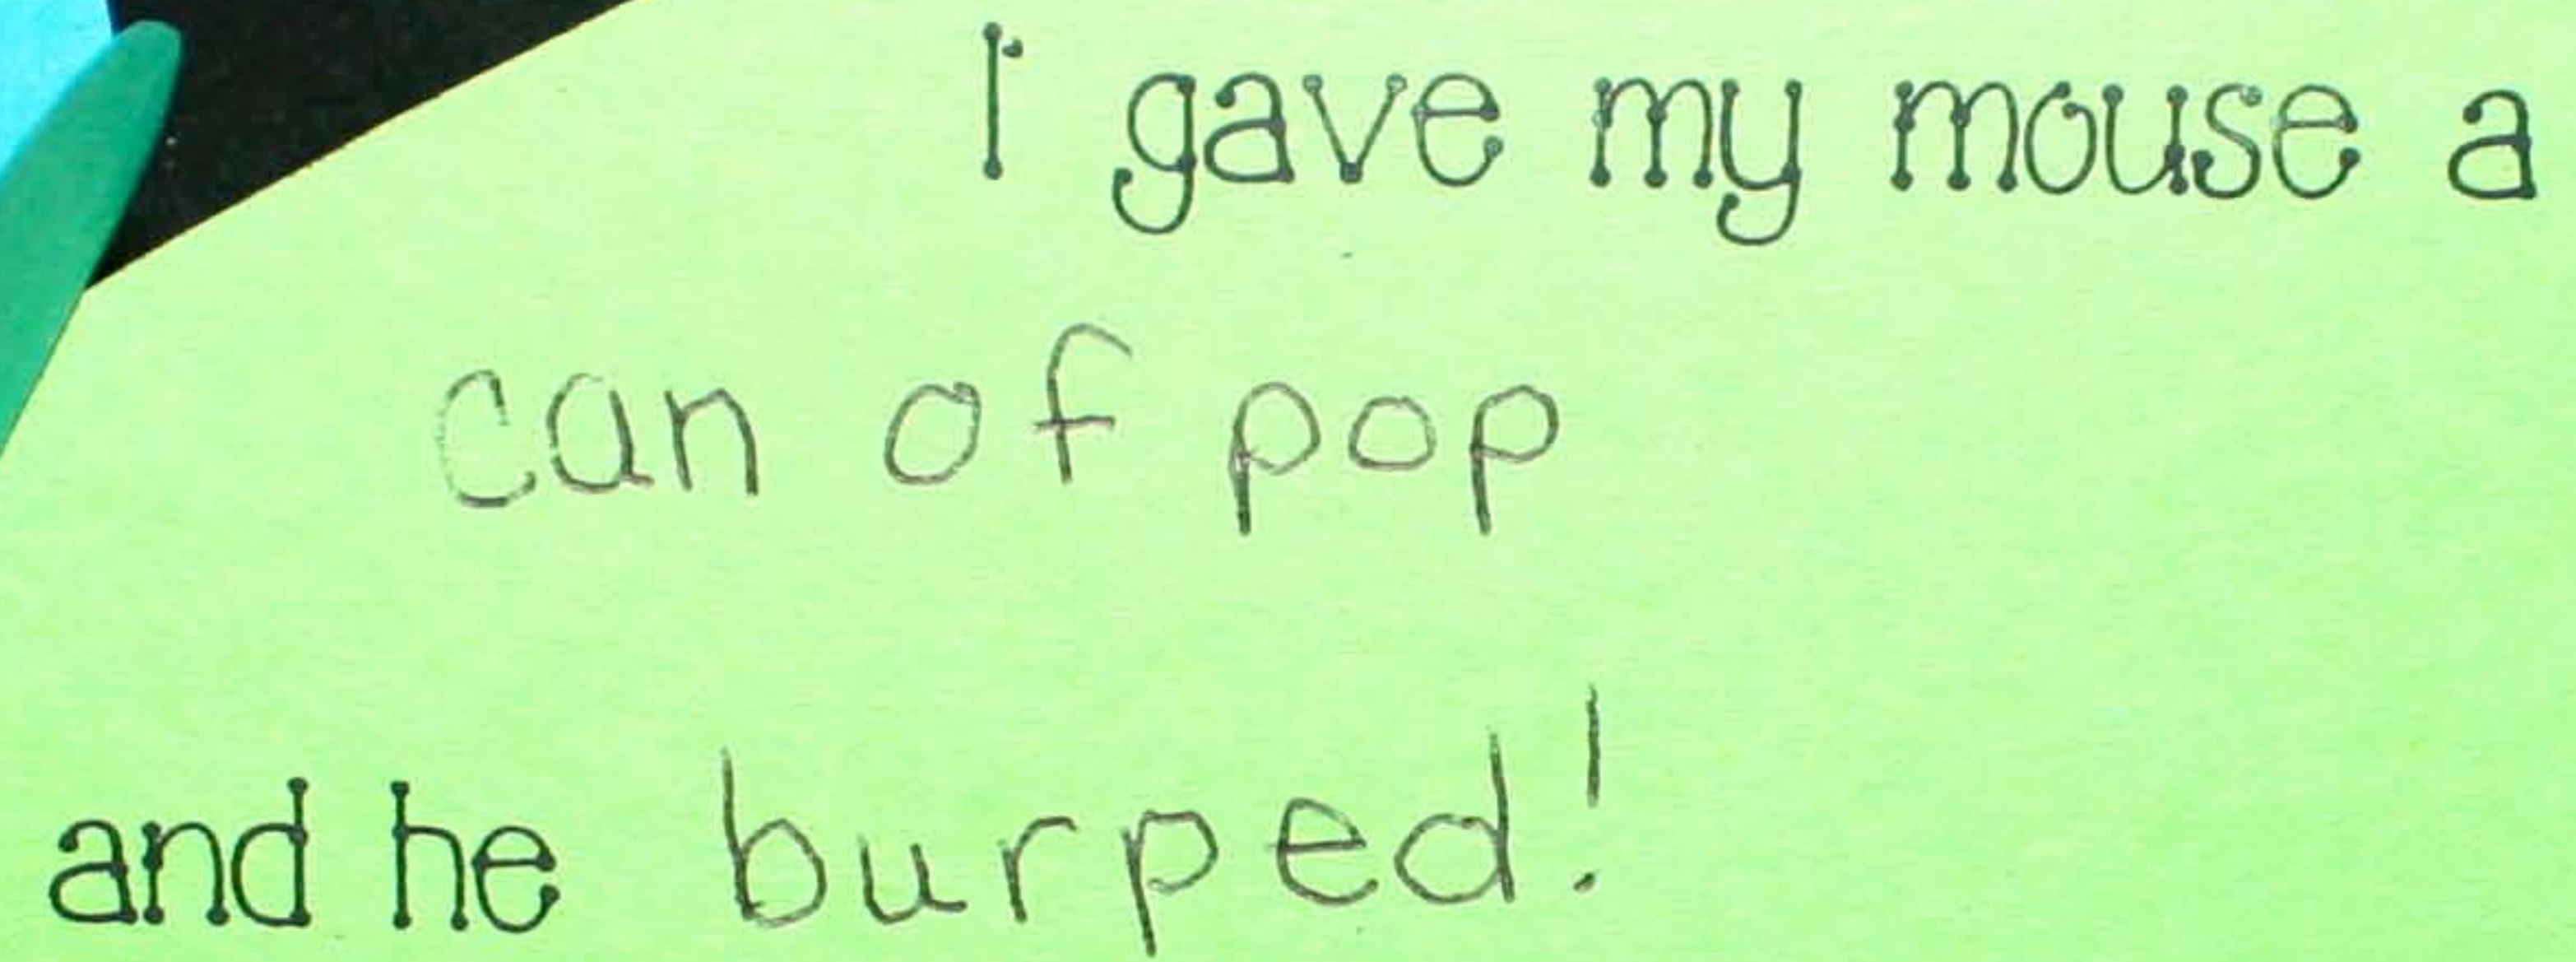 I gave my mouse a
can of pop
and he burped!